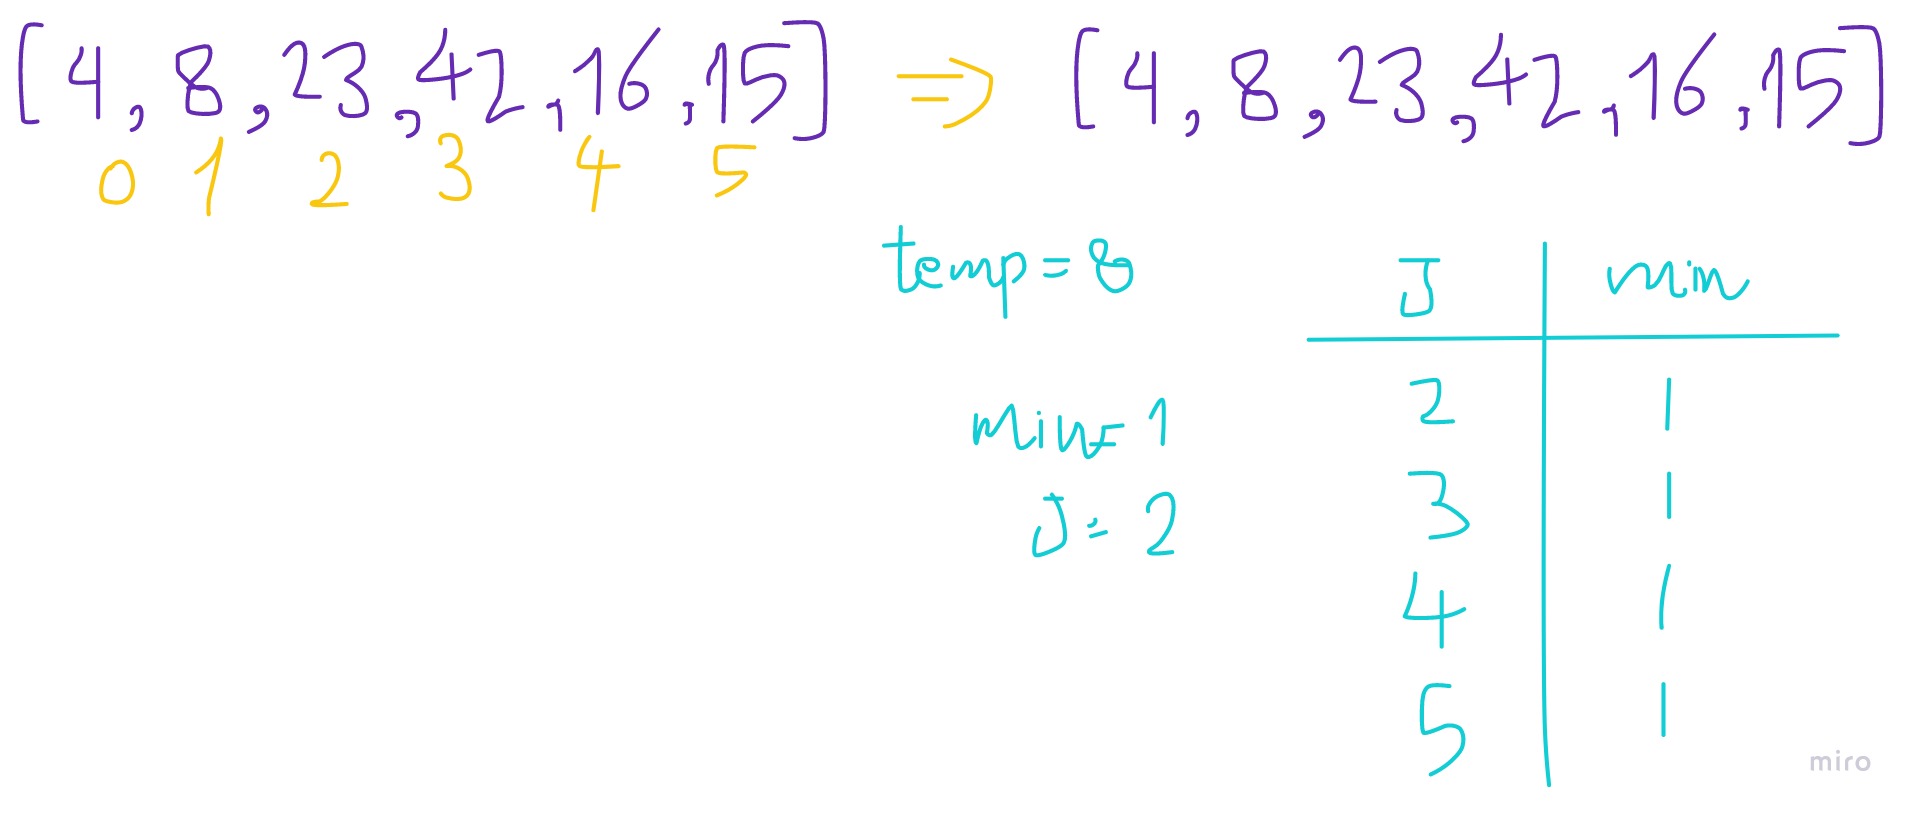 [4, 8, 23, 42, 16, 15] => [4, 8, 23, 42, 16, 15]
0 1 2 3 4 5
temp = 8
min = 1
J = 2
J min
2 1
3 1
4 1
5 1
miro